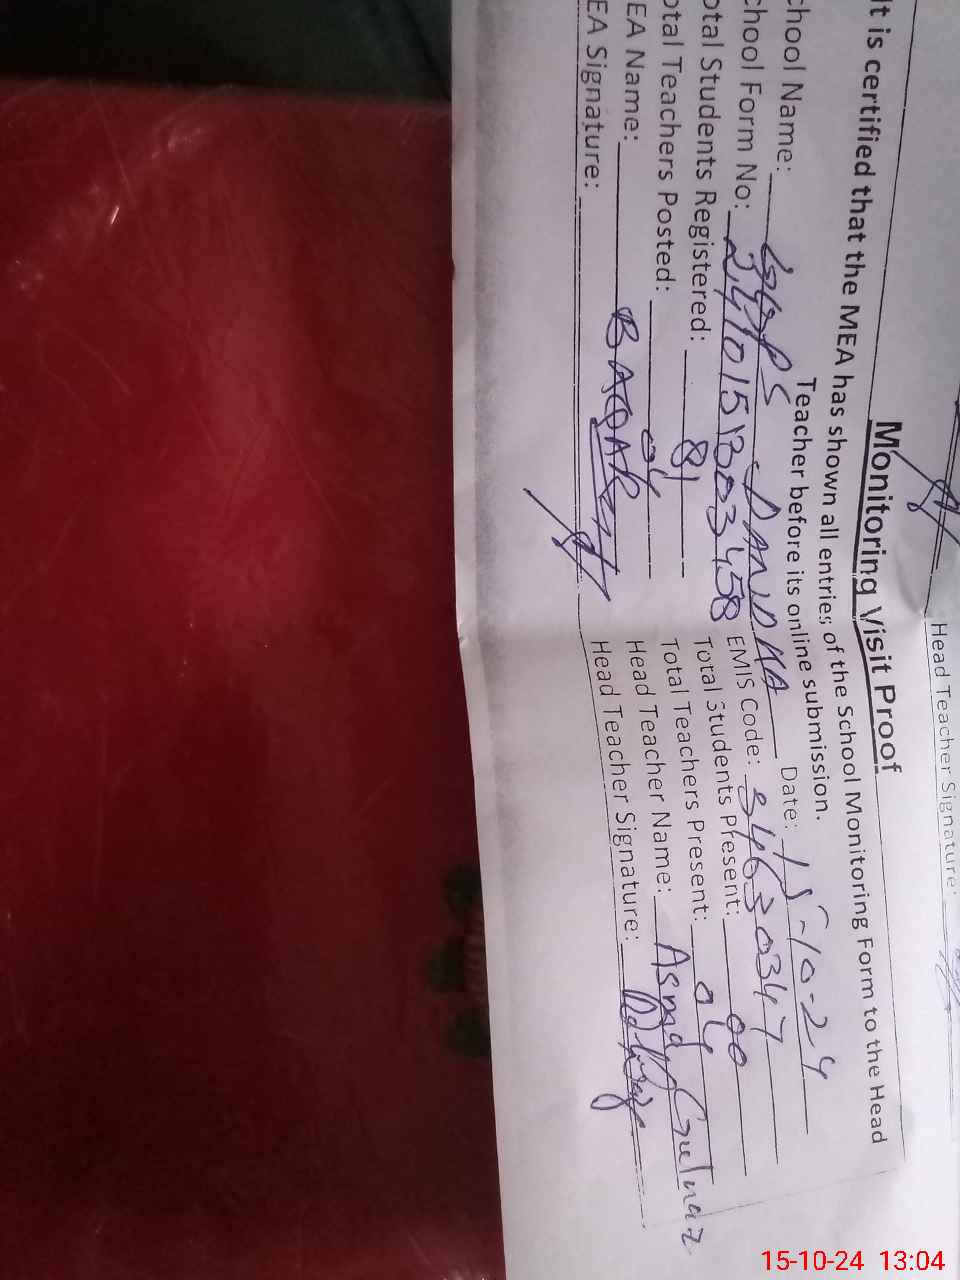 Head Teacher Signature:
Monitoring Visit Proof
It is certified that the MEA has shown all entries of the School Monitoring Form to the Head
Teacher before its online submission.
chool Name: GGPS DANDAA Date: 15-10-24
chool Form No: EMIS Code:
otal Students Registered: 81 Total Students Present: 00
otal Teachers Posted: 04 Total Teachers Present: 04
EA Name: BAQAR Head Teacher Name: Asma Gulnaz
EA Signature: Head Teacher Signature:
15-10-24 13:04